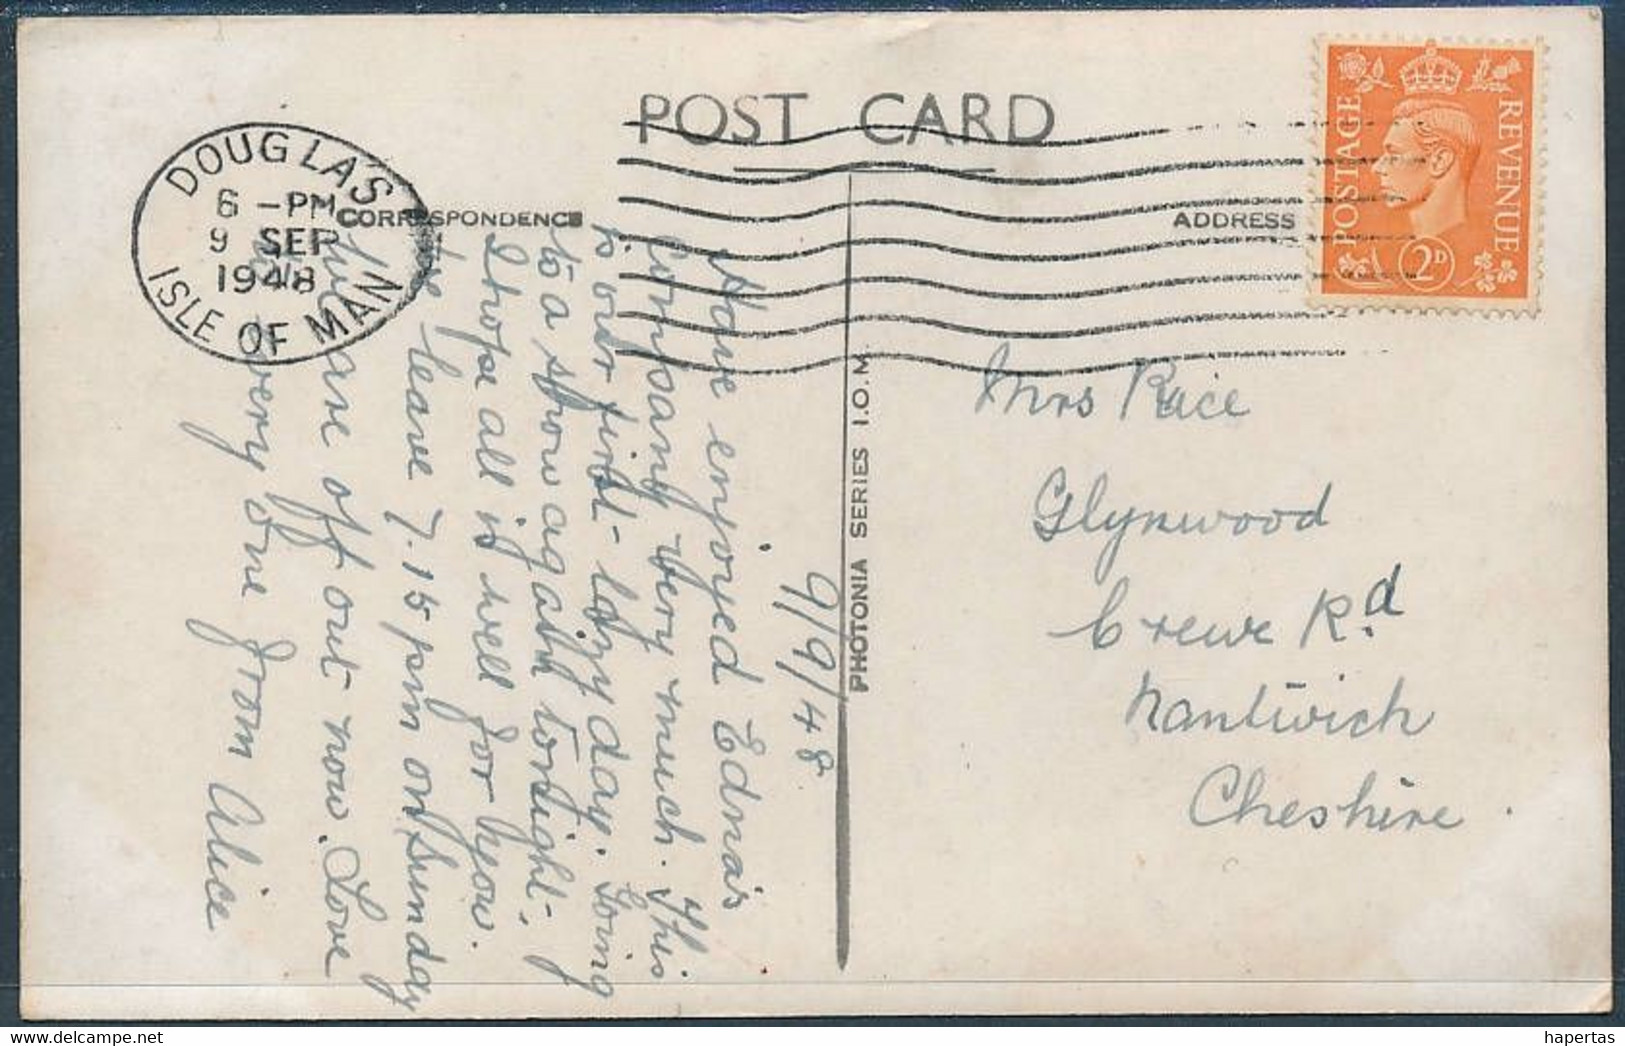 POST CARD
DOUGLAS
6 - PM
9 SEP
1948
ISLE OF MAN
CORRESPONDENCE
ADDRESS
POSTAGE
REVENUE
2D
9/9/48
Have enjoyed Edna's
Company very much. This
is our first lazy day. Going
to a show again tonight.
I hope all is well for you.
We leave 7.15 pm on Sunday
We are off out now. Love
every one from Alice
PHOTONIA SERIES I.O.M.
Mrs Rice
Glynwood
Crewe Rd
Nantwich
Cheshire.
delcampe.net
hapertas